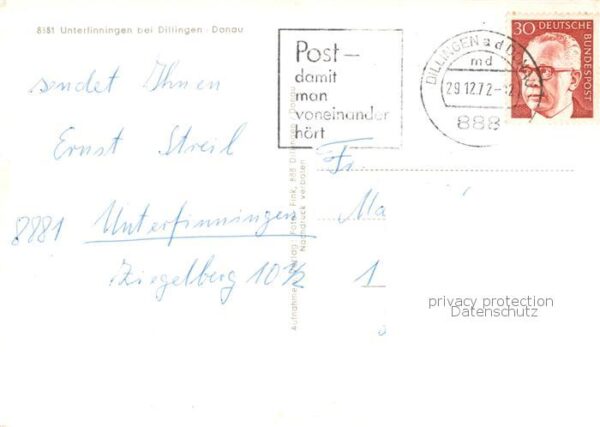 8881 Unterfinningen bei Dillingen Donau
sendet Ihnen
Ernst Streil
8881 Unterfinningen
Ziegelberg 10 1/2
Post –
damit
man
voneinander
hört
DILLINGEN a d DONAU
md
29.12.72-12
888
30 DEUTSCHE
BUNDESPOST
Fr.
Ma
1
Fink, 888 Dillingen Donau
Nachdruck verboten
privacy protection
Datenschutz